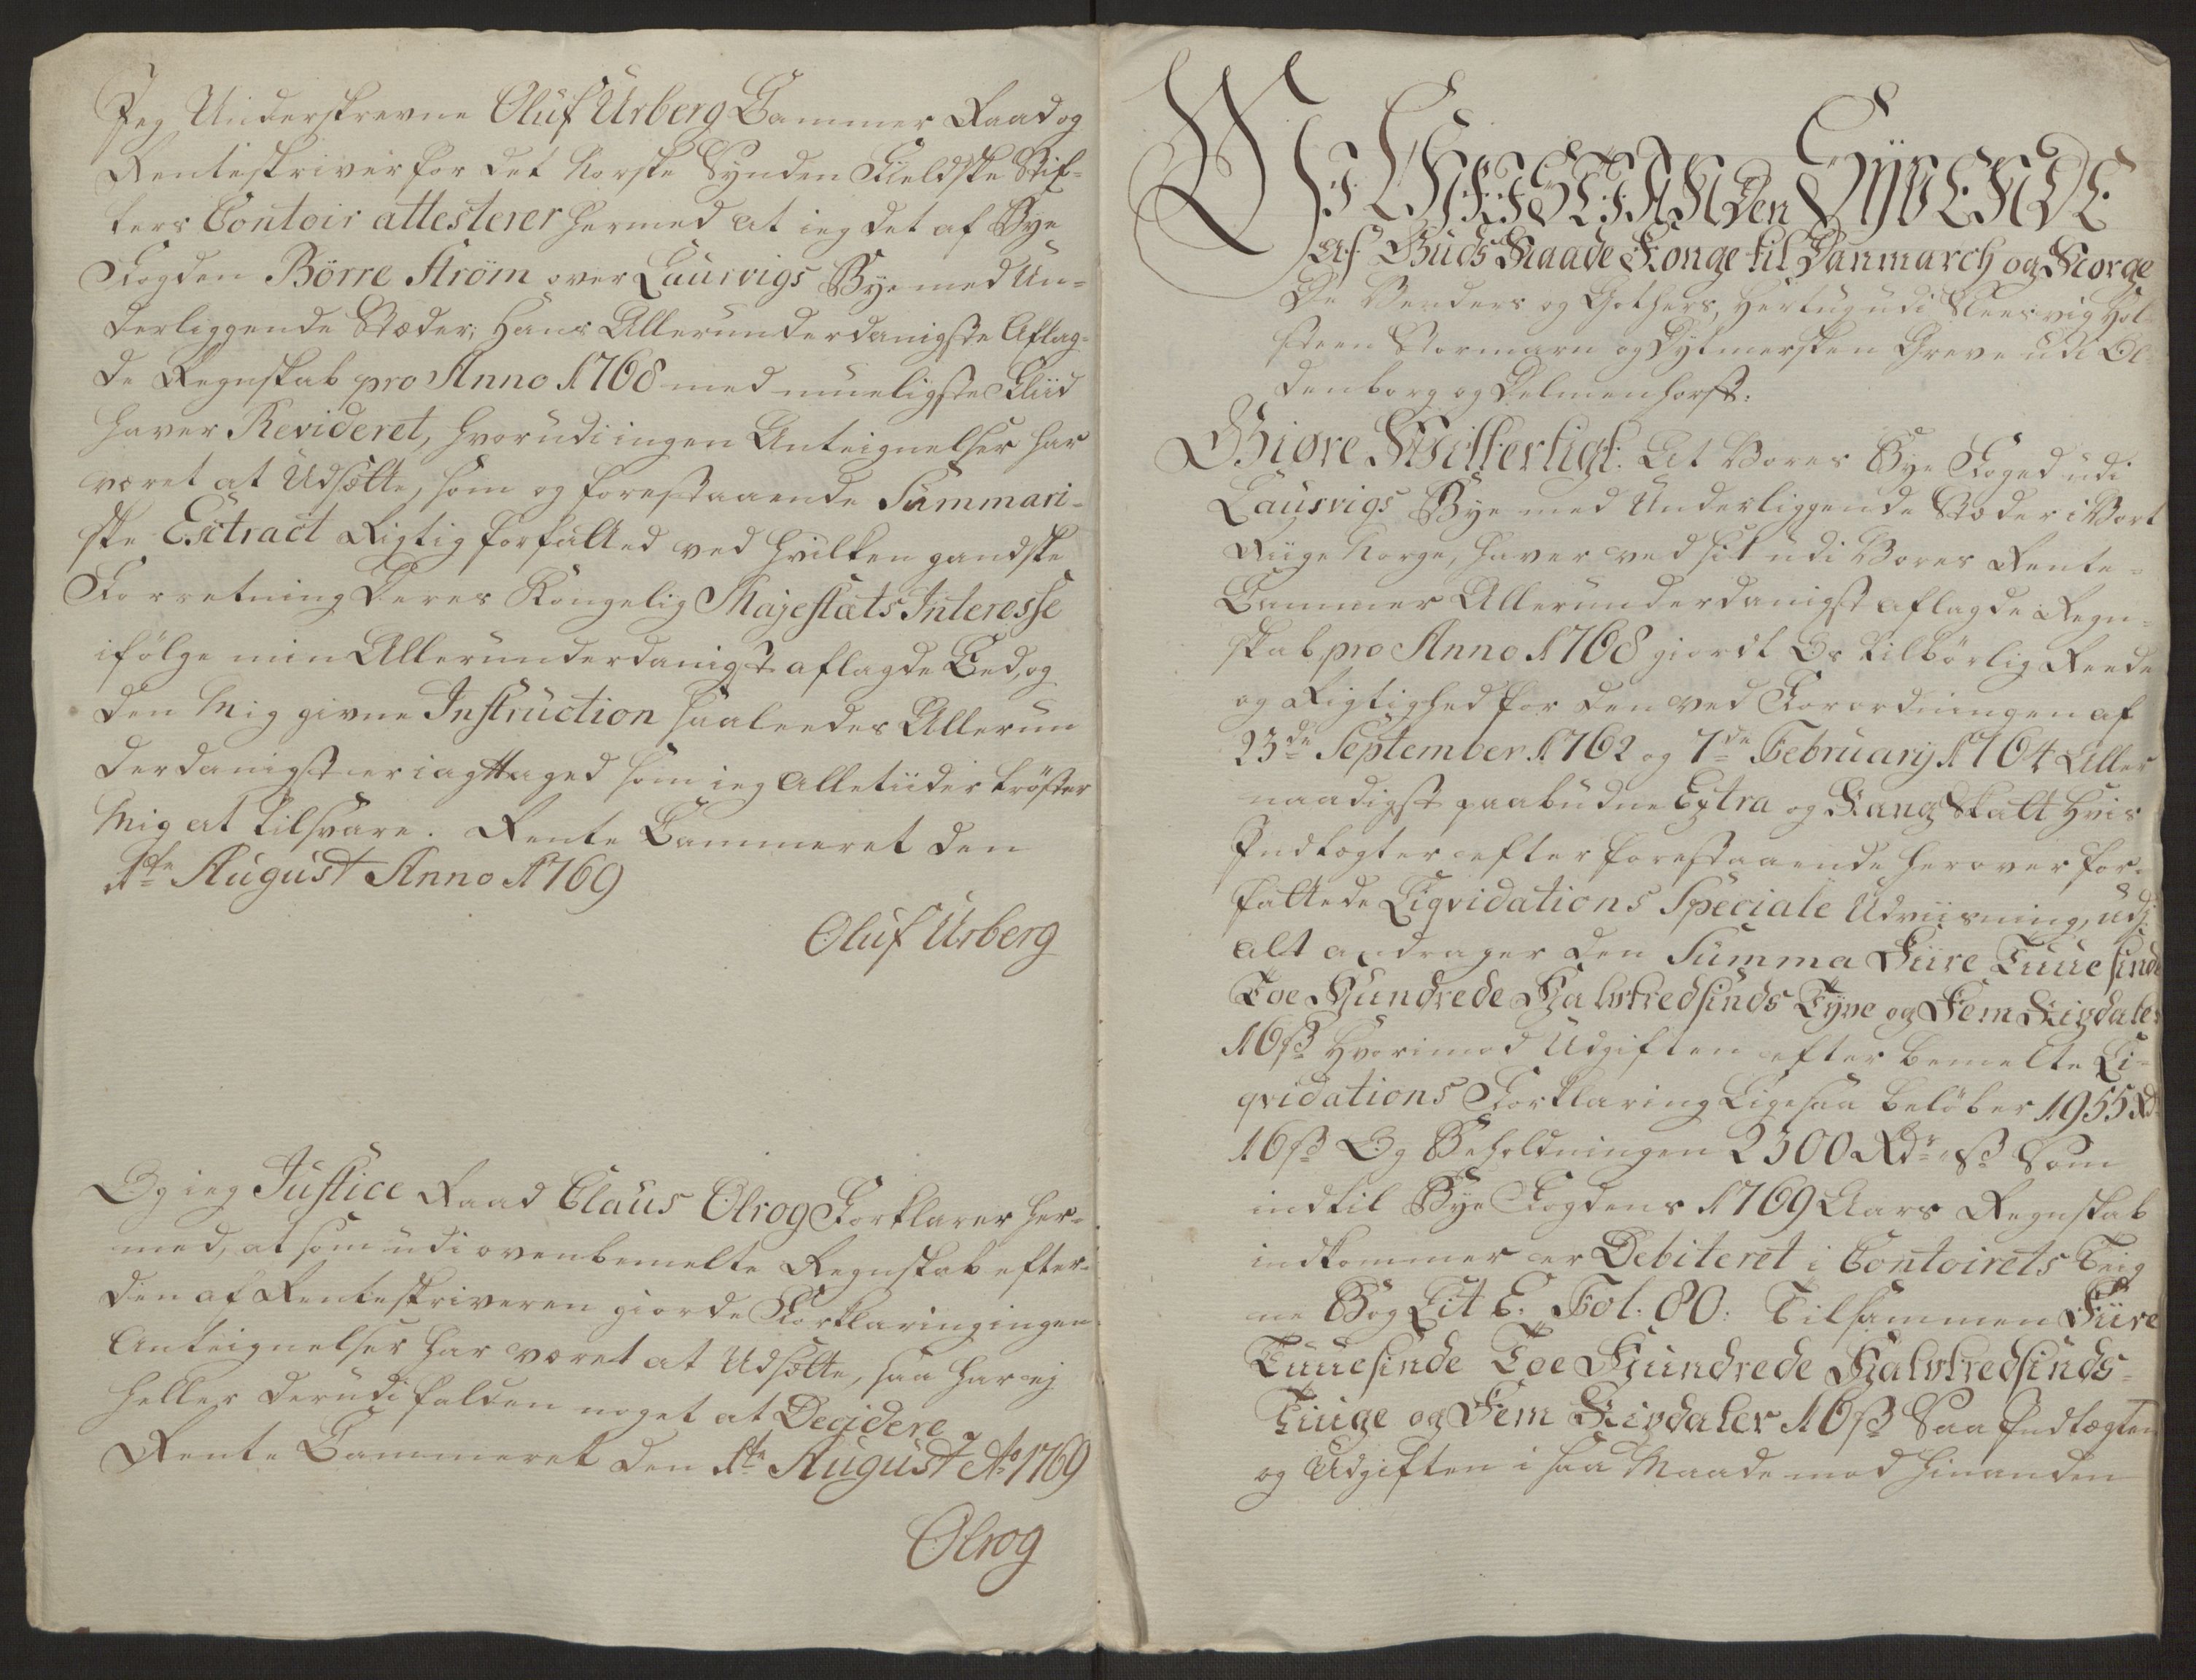 Jeg Underskrevne Oluf Urberg Cammer Raad og
Renteskriver for det Norske Synden Fieldske Stif-
ters Contoir attesterer hermed at ieg det af Bye
Fogden Börre Ström over Laurvigs Bye med Un-
derliggende Stæder, Hans Allerunderdanigste Aflag-
de Regnskab pro Anno 1768 med mueligste Fliid
haver Revideret, hvorudi ingen Anteignelser har
været at Udsætte, som og forestaaende Summari-
ske Extract Rigtig forfatted ved hvilken gandske
Forretning Deres Kongelig Majestæts Interesse
ifölge min Allerunderdanigst aflagde Eed, og
den Mig givne Instruction saaleedes Allerun
derdanigst er iagttaged som ieg Alletiider tröster
Mig at tilsvare. Rente Cammeret den
1ste August Anno 1769
Oluf Urberg
Og ieg Justice Raad Claus Olrog Forklarer her-
med, at som udi ovenbemelte Regnskab efter
den af Renteskriveren giorde Forklaring ingen
Anteignelser har været at Udsætte, saa har ej
heller derudi falden noget at Decidere
Rente Cammeret den 1ste August Ao 1769
Olrog
Wi CHRISTIAN Den SYVENDE
Af Guds Naade Konge til Danmarch og Norge
De Wenders og Gothers, Hertug udi Slesvig Hol
steen Stormarn og Dytmersken Greve udi Ol
denborg og Delmenhorst.
Giöre Witterligt: At Vores Bye Foged udi
Laurvigs Bye med Underliggende Stæder i Vort
Riige Norge, haver ved sit udi Vores Rente-
Cammer Allerunderdanigst aflagde Regn-
skab pro Anno 1768 giordt Os tilbörlig Reede
og Rigtighed for den ved Forordningen af
23de September 1762 og 7de February 1764 Aller
naadigst paabudne Extra og Rang Skatt Hvis
Indtægter efter forestaaende herover for-
fattede Liqvidations Speciale Udviisning, udi
alt andrager den Summa Fiire Tuuesinde
Toe Hundrede Halvtredsinds Tyve og Fem Rixdaler
16 ß Hvorimod Udgiften efter bemelte Li-
qvidations Forklaring Ligesaa belöber 1955 Rd
16 ß Og Beholdningen 2300 Rdr ß Som
indtil Bye Fogdens 1769 Aars Regnskab
indkommer er Debiteret i Contoirets Teig
ne Bog Lit E. Fol. 80: Tilsammen Fiire
Tuuesinde Toe Hundrede Halvtredsinds-
Tiuge og Fem Rixdaler 16 ß Saa Indtægten
og Udgiften i saa Maade mod hinanden